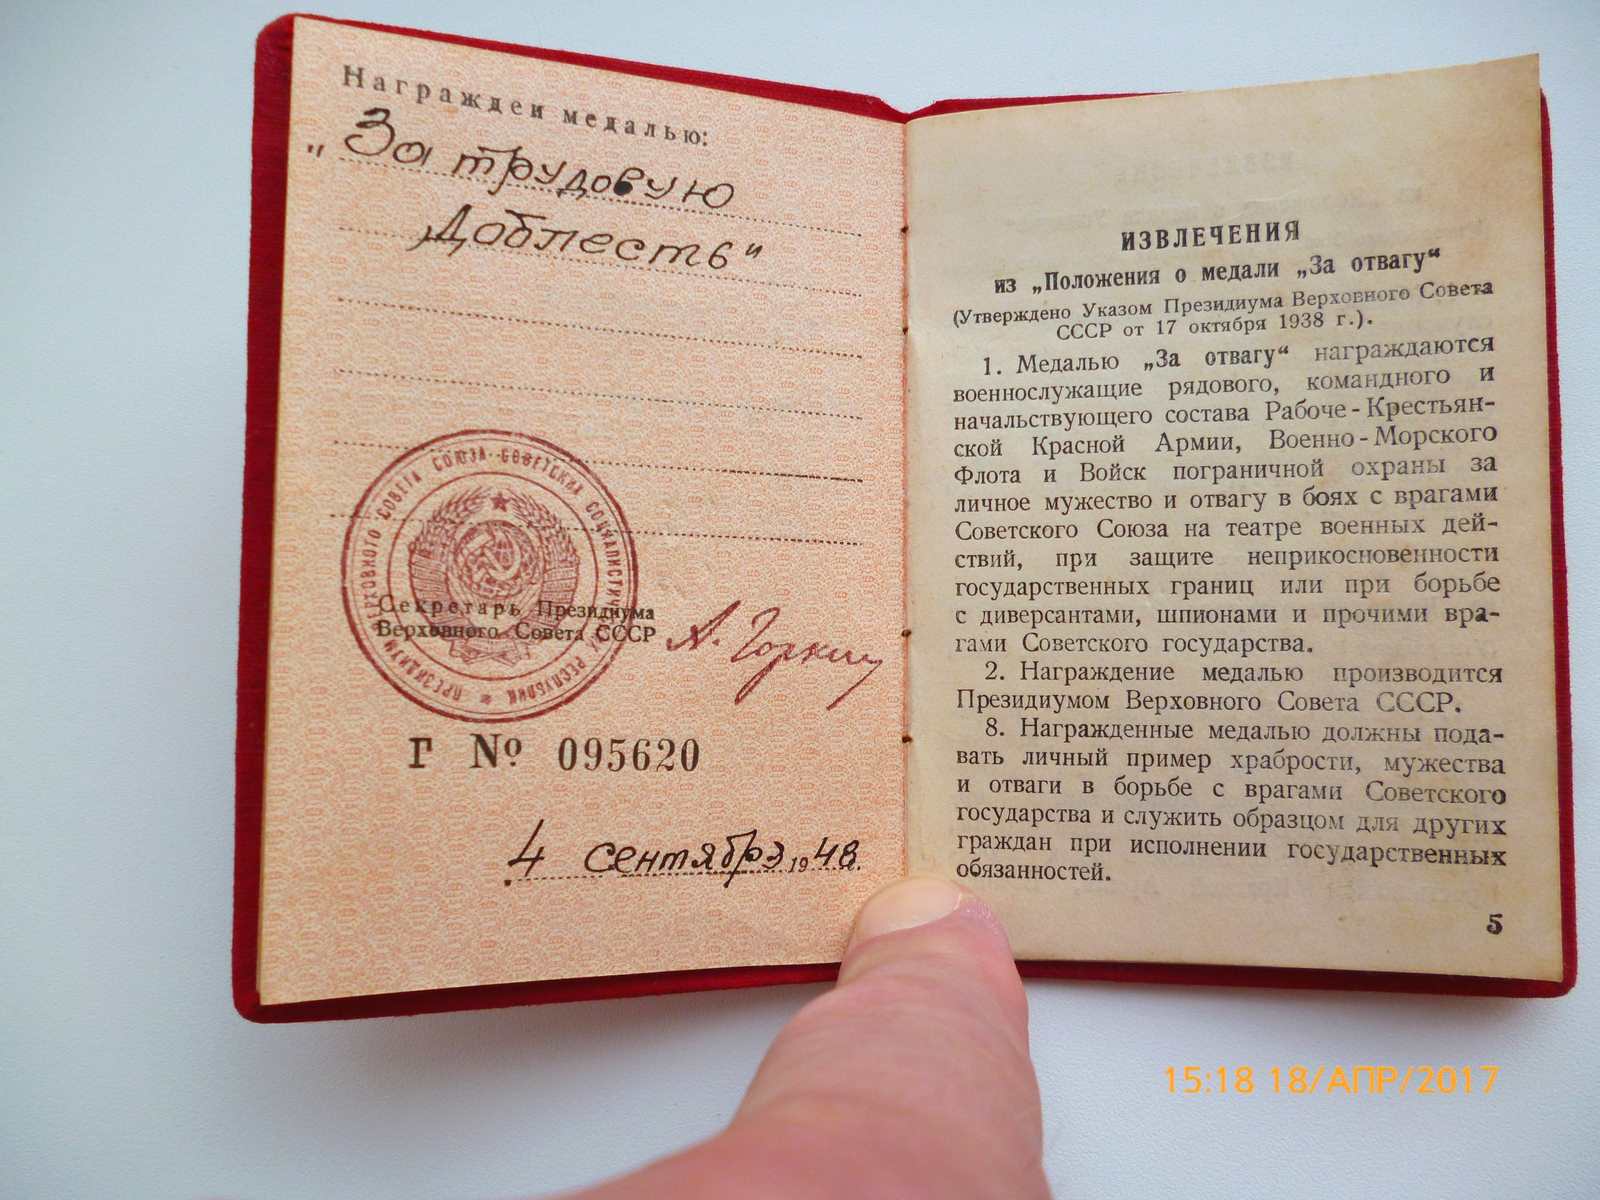 Награжден медалью:
„За трудовую
Доблесть“
ПРЕЗИДИУМ ВЕРХОВНОГО СОВЕТА СОЮЗА СОВЕТСКИХ СОЦИАЛИСТИЧ РЕСПУБЛИК
Секретарь Президиума
Верховного Совета СССР
А. Горкин
Г № 095620
4 сентября 1948.
ИЗВЛЕЧЕНИЯ
из „Положения о медали „За отвагу“
(Утверждено Указом Президиума Верховного Совета
СССР от 17 октября 1938 г.).
1. Медалью „За отвагу“ награждаются
военнослужащие рядового, командного и
начальствующего состава Рабоче-Крестьян-
ской Красной Армии, Военно-Морского
Флота и Войск пограничной охраны за
личное мужество и отвагу в боях с врагами
Советского Союза на театре военных дей-
ствий, при защите неприкосновенности
государственных границ или при борьбе
с диверсантами, шпионами и прочими вра-
гами Советского государства.
2. Награждение медалью производится
Президиумом Верховного Совета СССР.
8. Награжденные медалью должны пода-
вать личный пример храбрости, мужества
и отваги в борьбе с врагами Советского
государства и служить образцом для других
граждан при исполнении государственных
обязанностей.
5
15:18 18/АПР/2017